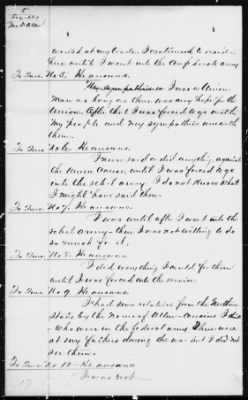 5
worked at my trade I continued to reside
here until I went into the Confederate army
To Inter No 5. He answers.
They sympathies in I was a Union
Man as long as there was any hope for the
Union. After that I was forced to go with
My people and My sympathies were with
them.
To Inter No 6. He answers
I never said or did anything against
the Union cause, until I was forced to go
into the rebel army. I do not know what
I might have said then.
To Inter No 7. He answers.
I was until after I went into the
rebel army then I was not willing to do
so much for it.
To Inter No 8. He answers
I did everything I could for them
until I was forced into the service.
To Inter No 9. He answers.
I had some relatives from the Northern
State by the name of Allen Cousins I did
who were in the federal army. There were
at my fathers during the war but I did not
see them.
To Inter No 10 He answers
I was not
17